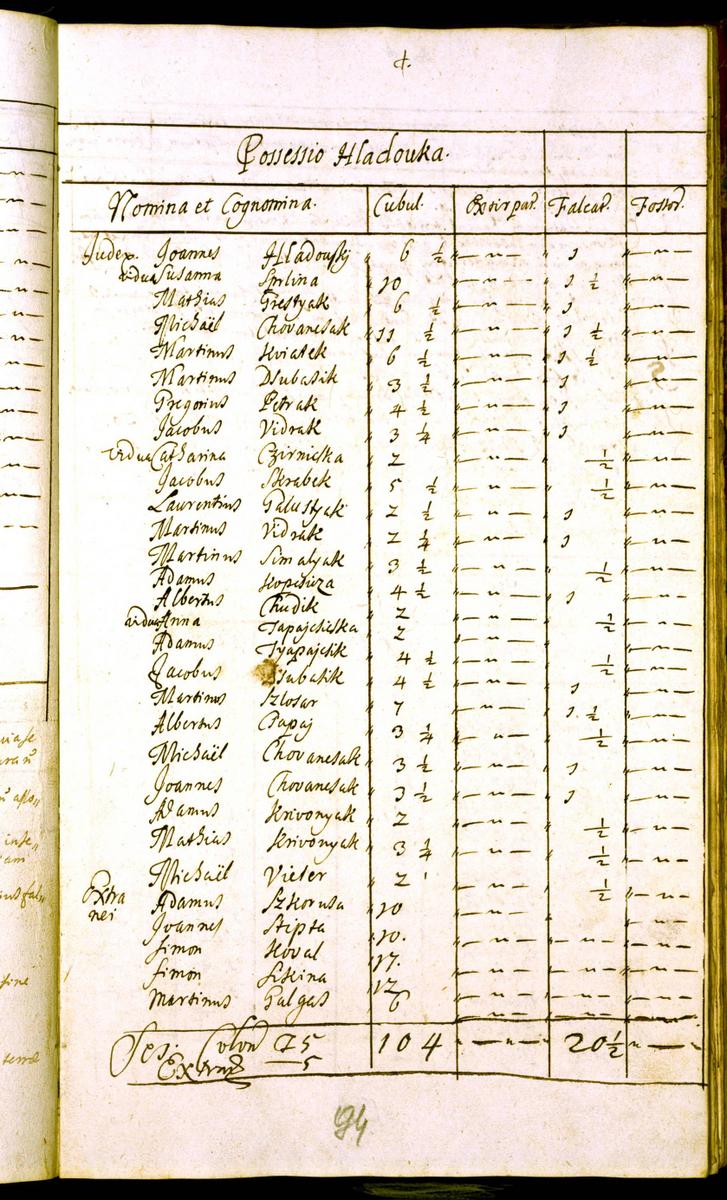 Possessio Hladouka.
Nomina et Cognomina. Cubul. Extirpat. Falcat. Fossor.
Judex. Joannes Hladouskj 6 1/2 1
vidua Susanna Sprlina 10 1 1/2
Mathias Grestyak 6 1/2 1
Michaël Chovancsak 11 1/2 1 1/2
Martinus Kviatek 6 1/2 1 1/2
Martinus Dsubasik 3 1/2 1
Gregorius Petrak 4 1/2 1
Jacobus Vidrak 3 1/4 1
vidua Catharina Czirnicska 2 1/2
Jacobus Skrabek 5 1/2 1/2
Laurentius Galustyak 2 1/2 1
Martinus Vidrak 2 1/4 1
Martinus Simalyak 3 1/2 1/2
Adamus Kopcsiza 4 1/2 1
Albertus Chudik 2 1/2
vidua Anna Tapajcsicska 2
Adamus Tyapajcsik 4 1/2 1/2
Jacobus Dsubasik 4 1/2 1
Martinus Szlosar 7 1 1/2
Albertus Czapaj 3 1/4 1/2
Michaël Chovancsak 3 1/2 1
Joannes Chovancsak 3 1/2 1
Adamus Krivonyak 2 1/2
Mathias Krivonyak 3 1/4 1/2
Michaël Vieter 2 1/2
Extra Adamus Szkorusa 10
nei Joannes Stipta 10.
Simon Koval 17.
Simon 12
Martinus Galgas 6
Col 25 104 20 1/2
Extran 5
94